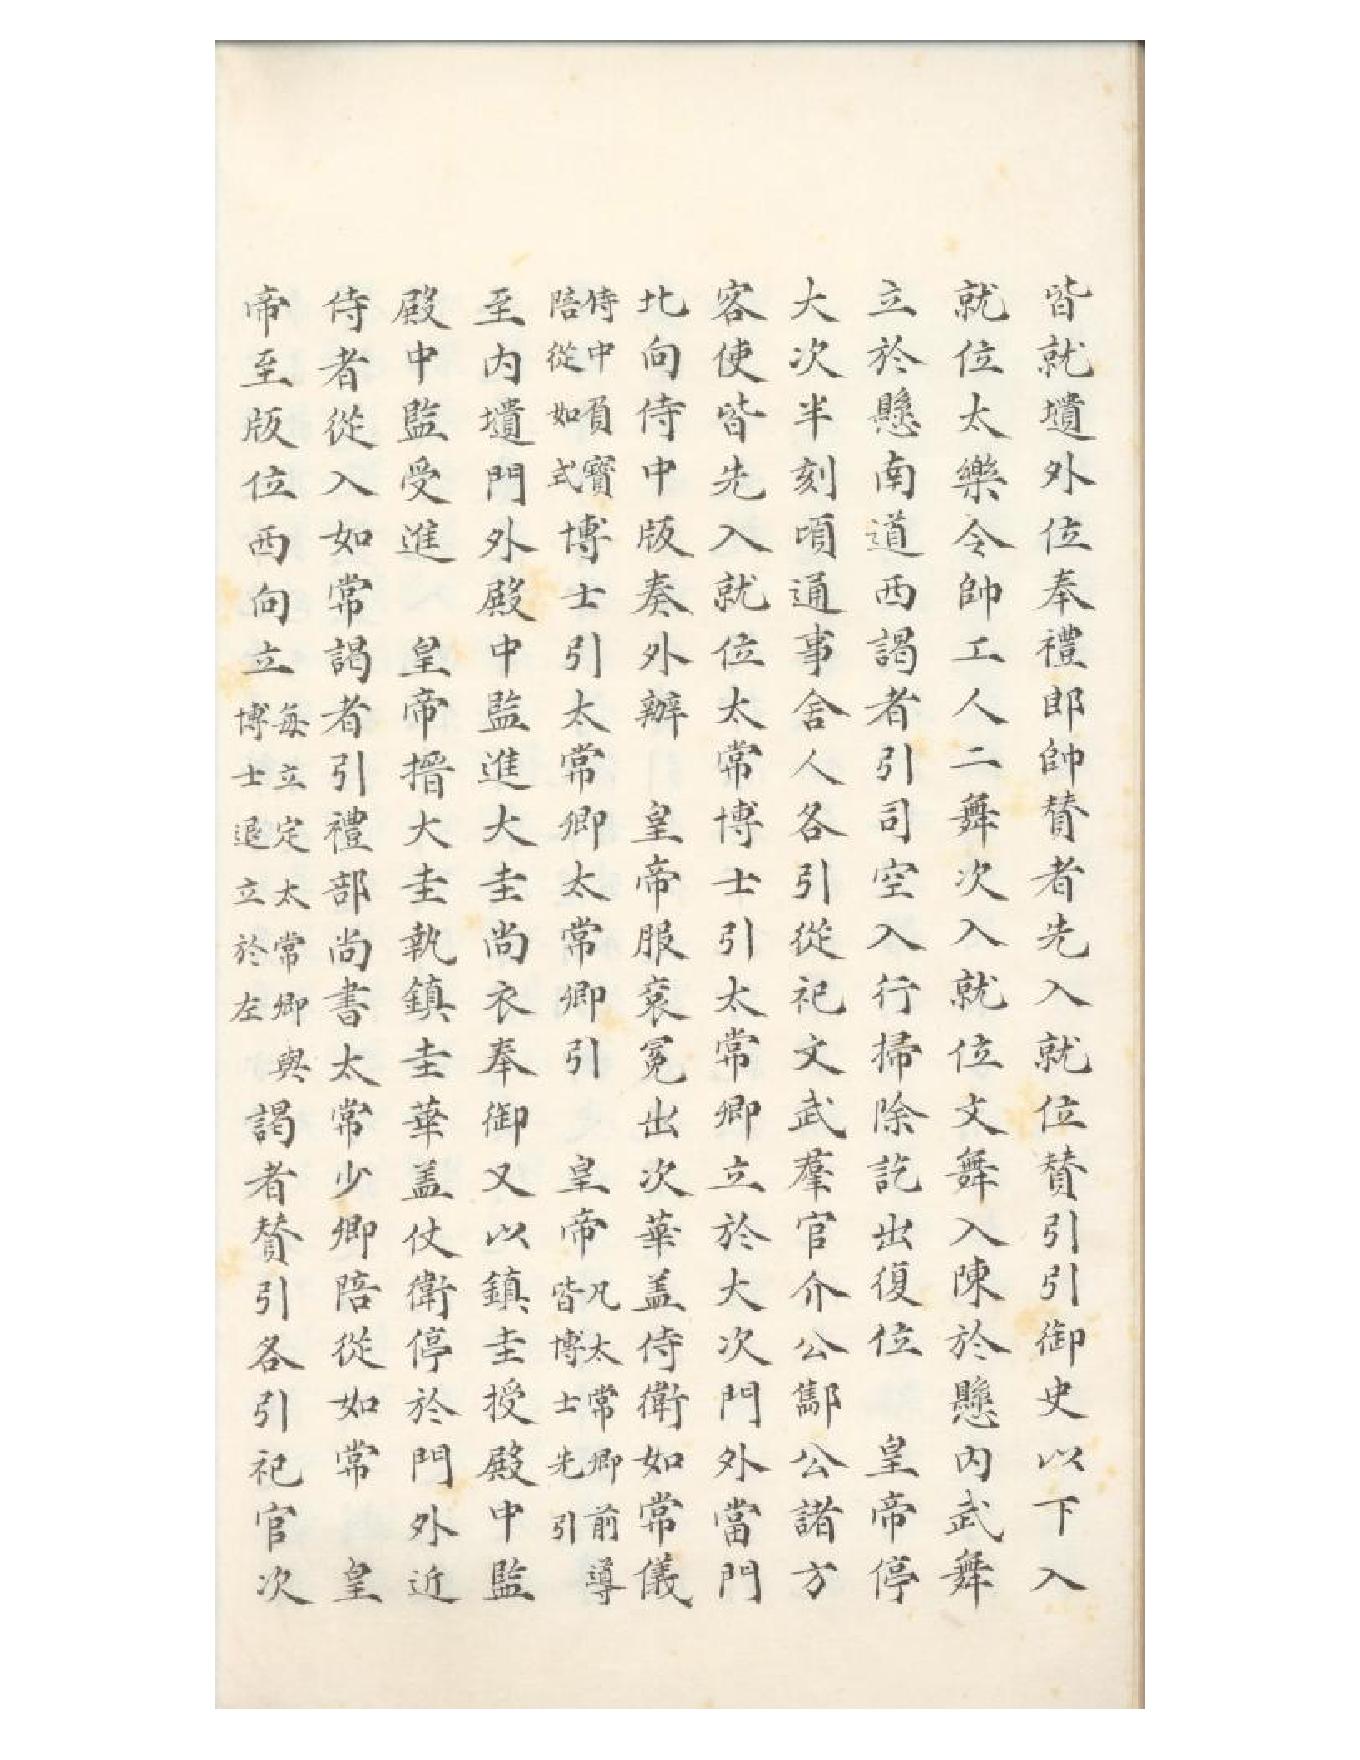 皆就壝外位奉禮郎帥賛者先入就位賛引引御史以下入
就位太樂令帥工人二舞次入就位文舞入陳於懸內武舞
立於懸南道西謁者引司空入行掃除訖出復位　皇帝停
大次半刻頃通事舍人各引從祀文武羣官介公酅公諸方
客使皆先入就位太常博士引太常卿立於大次門外當門
北向侍中版奏外辦　皇帝服衮冕出次華盖侍衛如常儀
侍中負寶陪從如式博士引太常卿太常卿引　皇帝凡太常卿前導皆博士先引
至內壝門外殿中監進大圭尚衣奉御又以鎮圭授殿中監
殿中監受進　皇帝搢大圭執鎮圭華盖仗衛停於門外近
侍者從入如常謁者引禮部尚書太常少卿陪從如常　皇
帝至版位西向立每立定太常卿與博士退立於左謁者賛引各引祀官次